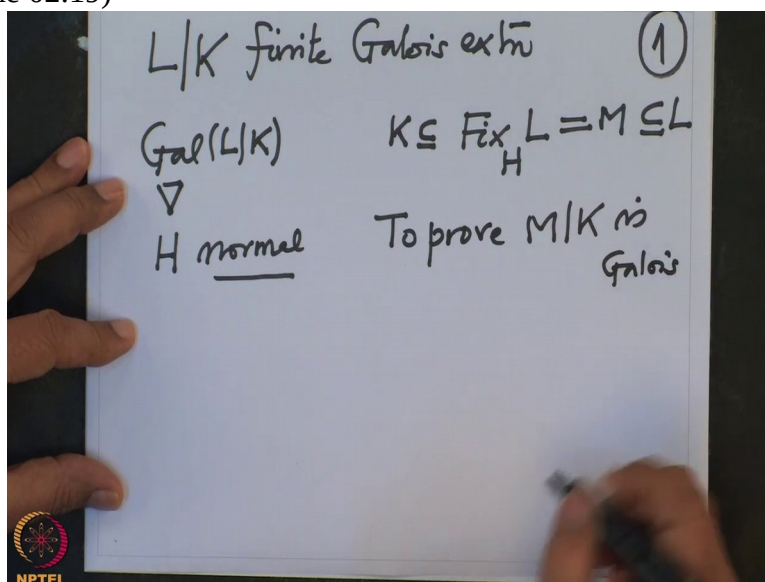 ne 02:15)
L/K finite Galois extn̄
1
Gal(L/K) K ⊆ Fix_H L = M ⊆ L
▽
H normal To prove M/K is
Galois
NPTEL